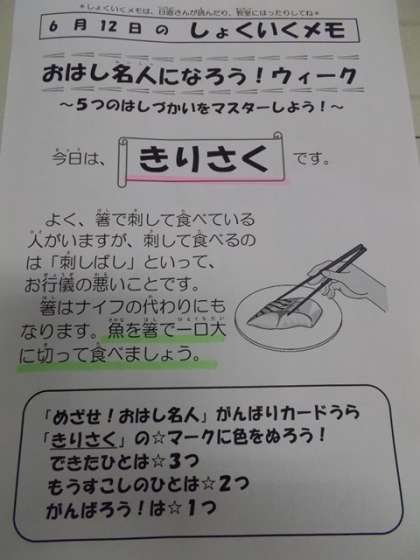 ＊しょくいくメモは、日直さんが読んだり、教室にはったりしてね＊
6月12日の しょくいくメモ
おはし名人になろう！ウィーク
～5つのはしづかいをマスターしよう！～
今日は、 きりさく です。
よく、箸で刺して食べている
人がいますが、刺して食べるの
は「刺しばし」といって、
お行儀の悪いことです。
箸はナイフの代わりにも
なります。魚を箸で一口大
に切って食べましょう。
「めざせ！おはし名人」がんばりカードうら
「きりさく」の☆マークに色をぬろう！
できたひとは☆3つ
もうすこしのひとは☆2つ
がんばろう！は☆1つ